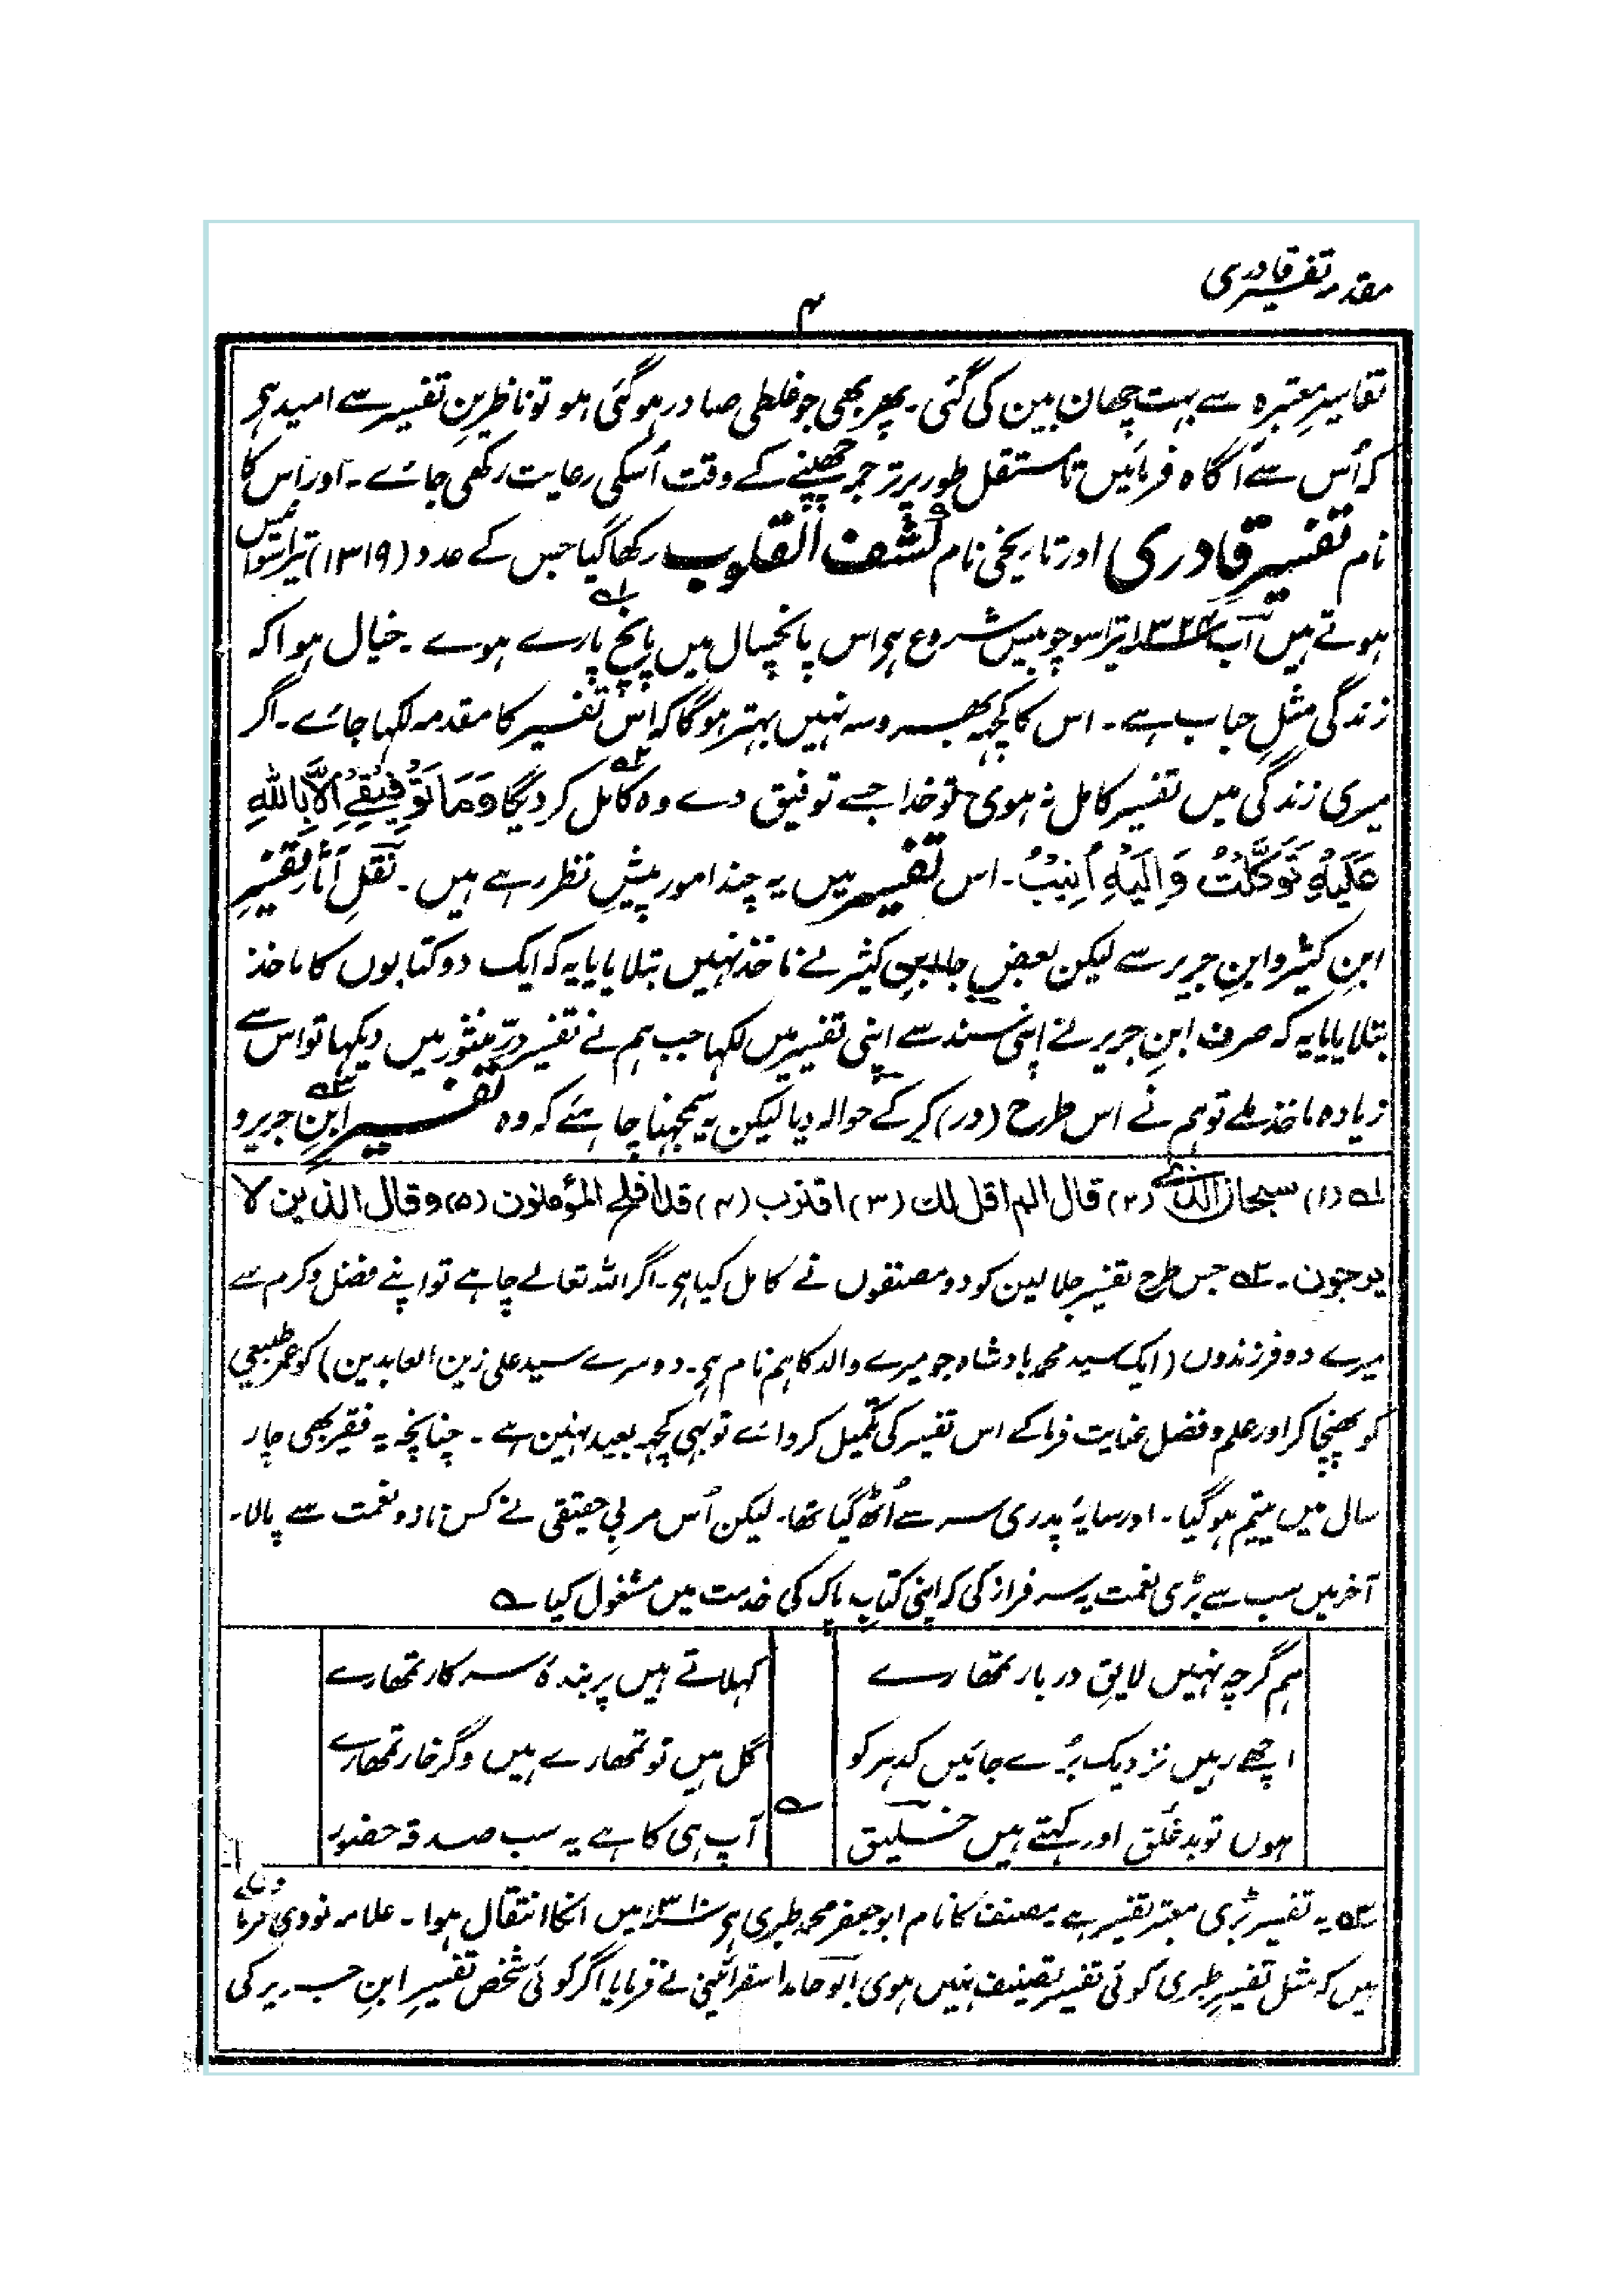 مقدمہ تفسیر قادری
۴
تفاسیرِ معتبرہ سے بہت چھان بین کی گئی۔ پھر بھی جو غلطی صادر ہوگئی ہو تو ناظرینِ تفسیر سے امید ہی
کہ اُس سے آگاہ فرمائیں تا مستقل طور پر ترجمہ چھپنے کے وقت اُسکی رعایت رکھی جائے۔ اور اس کا
نام تفسیر قادری اور تاریخی نام کشف القلوب رکھا گیا جس کے عدد (۱۳۱۹) تیراسو اُنیس
ہوتے ہیں اب ۱۳۲۴ تیراسو چوبیس شروع ہی اس پانچسال میں پانچ پارے ہوے ۱ـه۔ خیال ہوا کہ
زندگی مثلِ حباب ہے۔ اس کا کچھہ بھروسہ نہیں بہتر ہوگا کہ اس تفسیر کا مقدمہ لکہا جائے۔ اگر
میری زندگی میں تفسیر کامل نہ ہوی تو خدا جسے توفیق دے وہ کامل ۲ـه کردیگا وَمَا تَوْفِيْقِيْ اِلَّا بِاللّٰهِ
عَلَيْهِ تَوَكَّلْتُ وَاِلَيْهِ اُنِيْبُ۔ اس تفسیر میں یہ چند امور پیشِ نظر رہے ہیں۔ نقلِ آثار تفسیرِ
ابنِ کثیر و ابنِ جریر سے لیکن بعض جا ابنِ کثیر نے ماخذ نہیں بتلایا یا یہ کہ ایک دو کتابوں کا ماخذ
بتلایا یا یہ کہ صرف ابنِ جریر نے اپنی سند سے اپنی تفسیر میں لکہا جب ہم نے تفسیر درِّ منثور میں دیکہا تو اس سے
زیادہ ماخذ ملے تو ہم نے اس طرح (در) کرکے حوالہ دیا لیکن یہ سمجہنا چاہئے کہ وہ تفسیر ابنِ جریر ۳ـه و
۱ـه (۱) سبحان الذی (۲) قال الم اقل لك (۳) اقترب (۴) قد افلح المؤمنون (۵) وقال الذین لا
یرجون۔ ۲ـه جس طرح تفسیر جلالین کو دو مصنفوں نے کامل کیا ہی۔ اگر اللہ تعالے چاہے تو اپنے فضل و کرم سے
میرے دو فرزندوں (ایک سید محمد بادشاہ جو میرے والد کا ہم نام ہی۔ دوسرے سید علی زین العابدین) کو عمر طبیعی
کو پھنچا کر اور علم و فضل عنایت فرما کے اس تفسیر کی تکمیل کروائے تو بہی کچھہ بعید نہین ہے۔ چنانچہ یہ فقیر بھی چار
سال میں یتیم ہوگیا۔ اور سایۂ پدری سر سے اُٹھ گیا تھا۔ لیکن اُس مربیِ حقیقی نے کس ناز و نعمت سے پالا۔
آخر میں سب سے بڑی نعمت یہ سرفراز کی کہ اپنی کتابِ پاک کی خدمت میں مشغول کیا ؎
ہم گرچہ نہیں لایقِ دربار تمھارے کہلاتے ہیں پر بندۂ سرکار تمھارے
اچھے رہیں نزدیک بُرے جائیں کدہر کو گل ہیں تو تمھارے ہیں وگر خار تمھارے
؎
ہوں تو بدخُلق اور کہتے ہیں خلیق آپ ہی کا ہے یہ سب صدقہ حضور
۳ـه یہ تفسیر بڑی معتبر تفسیر ہے مصنف کا نام ابو جعفر محمد طبری ہی ۳۱۰ میں انکا انتقال ہوا۔ علامہ نووی فرماتے
ہیں کہ مثل تفسیرِ طبری کوئی تفسیر تصنیف نہیں ہوی ابو حامد اسفرائینی نے فرمایا اگر کوئی شخص تفسیرِ ابنِ جریر کی